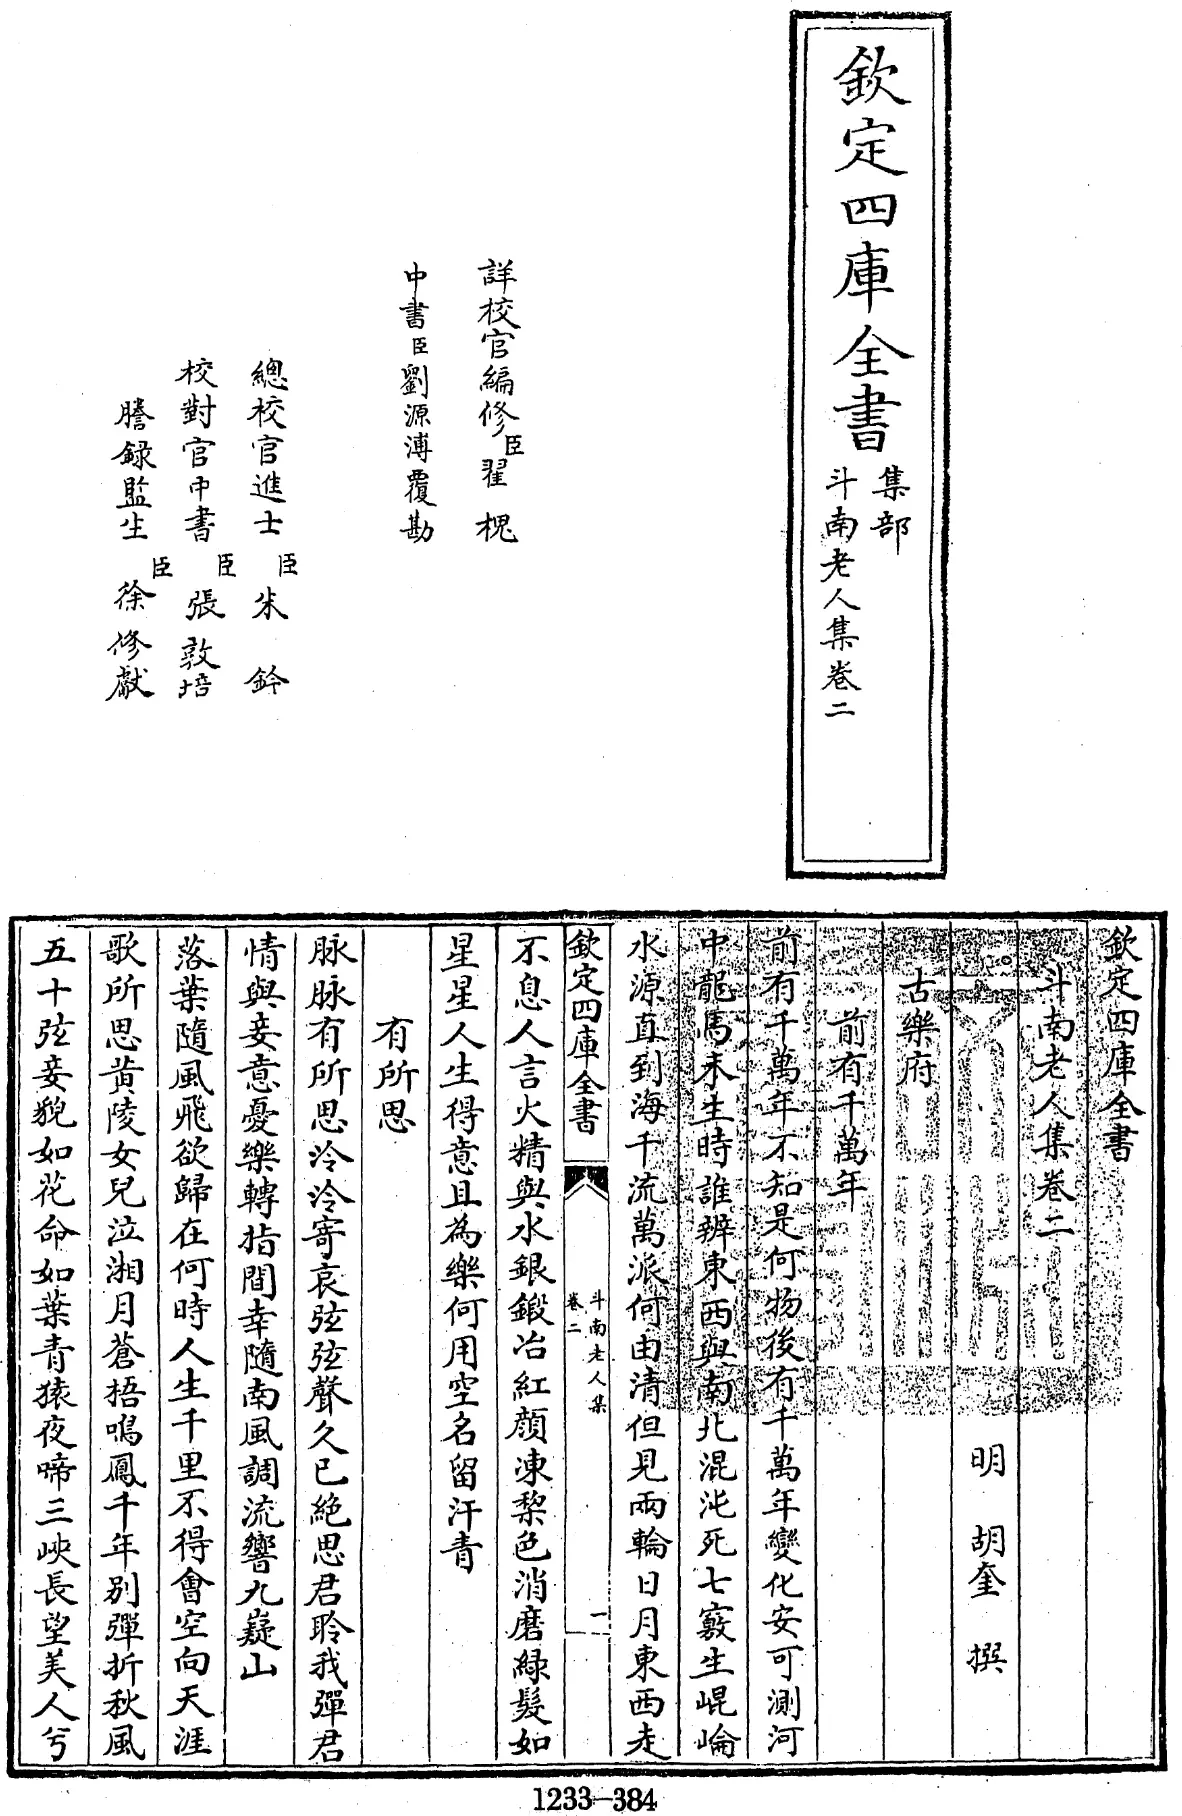 欽定四庫全書
集部
斗南老人集卷二
詳校官編修臣翟槐
中書臣劉源溥覆勘
總校官進士臣朱鈐
校對官中書臣張敦培
謄錄監生臣徐修獻
欽定四庫全書
斗南老人集卷二
明 胡奎 撰
古樂府
前有千萬年
前有千萬年不知是何物後有千萬年變化安可測河
中龍馬未生時誰辨東西與南北混沌死七竅生崐崘
水源直到海千流萬派何由清但見兩輪日月東西走
欽定四庫全書
斗南老人集
卷二
一
不息人言火精與水銀鍛冶紅顏凍棃色消磨綠髮如
星星人生得意且為樂何用空名留汗青
有所思
脉脉有所思泠泠寄哀弦弦聲久已絶思君聆我彈君
情與妾意憂樂轉指間幸隨南風調流響九嶷山
落葉隨風飛欲歸在何時人生千里不得會空向天涯
歌所思黃陵女兒泣湘月蒼梧鳴鳳千年別彈折秋風
五十弦妾貌如花命如葉青猿夜啼三峽長望美人兮
1233-384